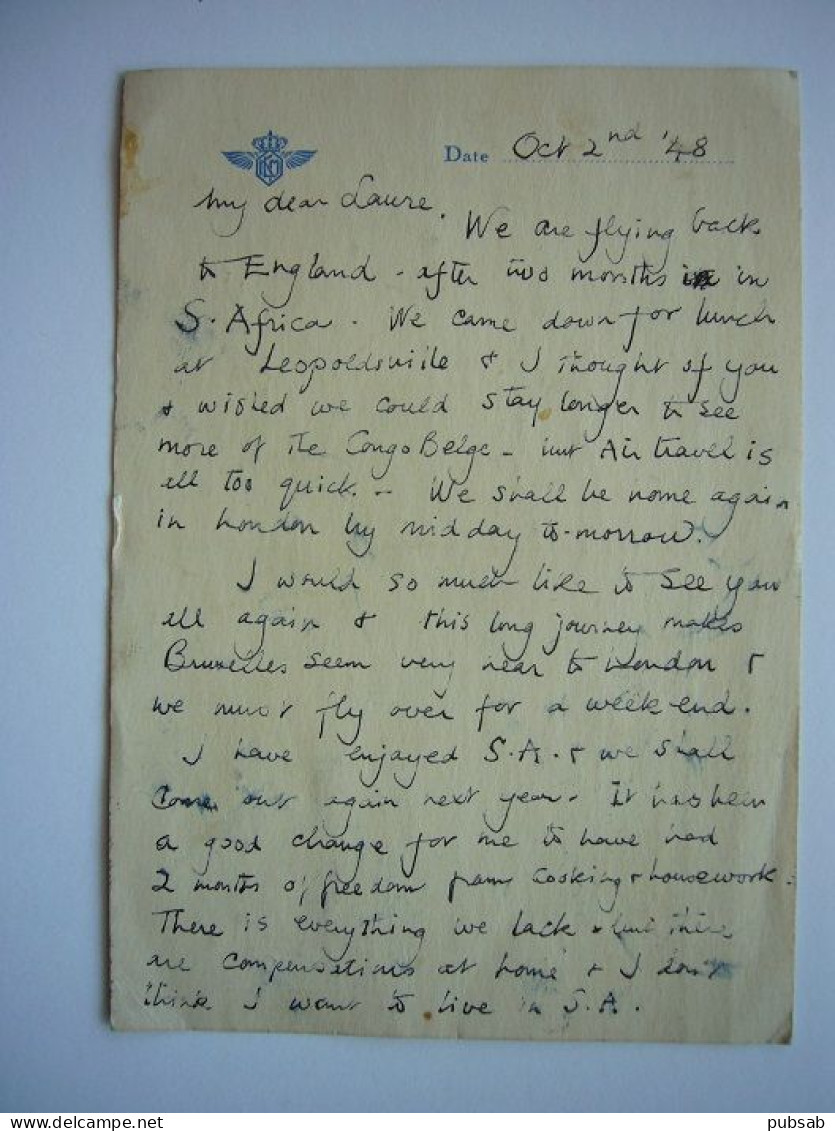 KLM
Date Oct 2nd '48
My dear Laure.
We are flying back
to England - after two months in
S. Africa. We came down for lunch
at Leopoldsville & I thought of you
& wished we could stay longer to see
more of the Congo Belge - but Air travel is
all too quick. - We shall be home again
in London by mid day to-morrow.
I would so much like to see you
all again & this long journey makes
Bruxelles seem very near to London &
we must fly over for a week-end.
I have enjoyed S.A. & we shall
come out again next year. It has been
a good change for me to have had
2 months of freedom from cooking & housework.
There is everything we lack & but there
are compensations at home & I don't
think I want to live in S.A.
delcampe.net
pubsab